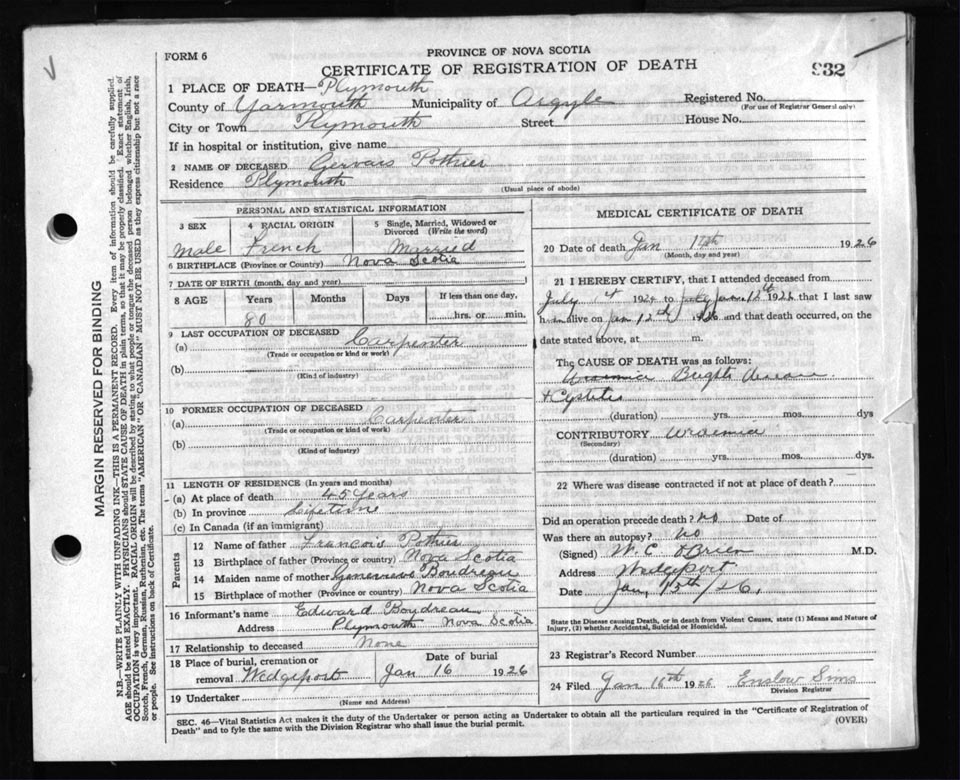 FORM 6
PROVINCE OF NOVA SCOTIA
CERTIFICATE OF REGISTRATION OF DEATH
932
1 PLACE OF DEATH—Plymouth
County of Yarmouth Municipality of Argyle Registered No.
(For use of Registrar General only)
City or Town Plymouth Street House No.
If in hospital or institution, give name
2 NAME OF DECEASED Gervais Pothier
Residence Plymouth
(Usual place of abode)
PERSONAL AND STATISTICAL INFORMATION
3 SEX 4 RACIAL ORIGIN 5 Single, Married, Widowed or Divorced (Write the word)
Male French Married
6 BIRTHPLACE (Province or Country) Nova Scotia
7 DATE OF BIRTH (month, day and year)
8 AGE Years Months Days If less than one day,
80 hrs. or min.
9 LAST OCCUPATION OF DECEASED
(a) Carpenter
(Trade or occupation or kind or work)
(b)
(Kind of industry)
10 FORMER OCCUPATION OF DECEASED
(a) Carpenter
(Trade or occupation or kind of work)
(b)
(Kind of industry)
11 LENGTH OF RESIDENCE (In years and months)
(a) At place of death 45 Years
(b) In province Lifetime
(c) In Canada (if an immigrant)
Parents
12 Name of father Francois Pothier
13 Birthplace of father (Province or country) Nova Scotia
14 Maiden name of mother Genevieve Boudreau
15 Birthplace of mother (Province or country) Nova Scotia
16 Informant's name Edward Boudreau
Address Plymouth Nova Scotia
17 Relationship to deceased None
18 Place of burial, cremation or removal Wedgeport
Date of burial Jan 16 1926
19 Undertaker
(Name and Address)
MEDICAL CERTIFICATE OF DEATH
20 Date of death Jan 1926
(Month, day and year)
21 I HEREBY CERTIFY, that I attended deceased from
July 1924 to Jan 12th 1926 that I last saw
h alive on Jan 12th 1926 and that death occurred, on the
date stated above, at m.
The CAUSE OF DEATH was as follows:
Brights Disease
+ Cystitis
(duration) yrs. mos. dys
CONTRIBUTORY Uraemia
(Secondary)
(duration) yrs. mos. dys.
22 Where was disease contracted if not at place of death?
Did an operation precede death? no Date of
Was there an autopsy? no
(Signed) W. C O'Brien M.D.
Address Wedgeport
Date Jan, /26.
State the Disease causing Death, or in death from Violent Causes, state (1) Means and Nature of
Injury, (2) whether Accidental, Suicidal or Homicidal.
23 Registrar's Record Number
24 Filed Jan 16th 1926 Enslow Sims
Division Registrar
SEC. 46—Vital Statistics Act makes it the duty of the Undertaker or person acting as Undertaker to obtain all the particulars required in the "Certificate of Registration of
Death" and to fyle the same with the Division Registrar who shall issue the burial permit. (OVER)
MARGIN RESERVED FOR BINDING
N.B.—WRITE PLAINLY WITH UNFADING INK—THIS IS A PERMANENT RECORD. Every item of information should be carefully supplied.
AGE should be stated EXACTLY. PHYSICIANS should STATE CAUSE OF DEATH in plain terms, so that it may be properly classified. Exact statement of
OCCUPATION is very important. RACIAL ORIGIN will be described by stating to what people or tongue the deceased person belonged whether English, Irish,
Scotch, French, German, Russian, Ruthenian, etc. The terms "AMERICAN" OR "CANADIAN" MUST NOT BE USED as they express citizenship but not a race
or people. See instructions on back of Certificate.